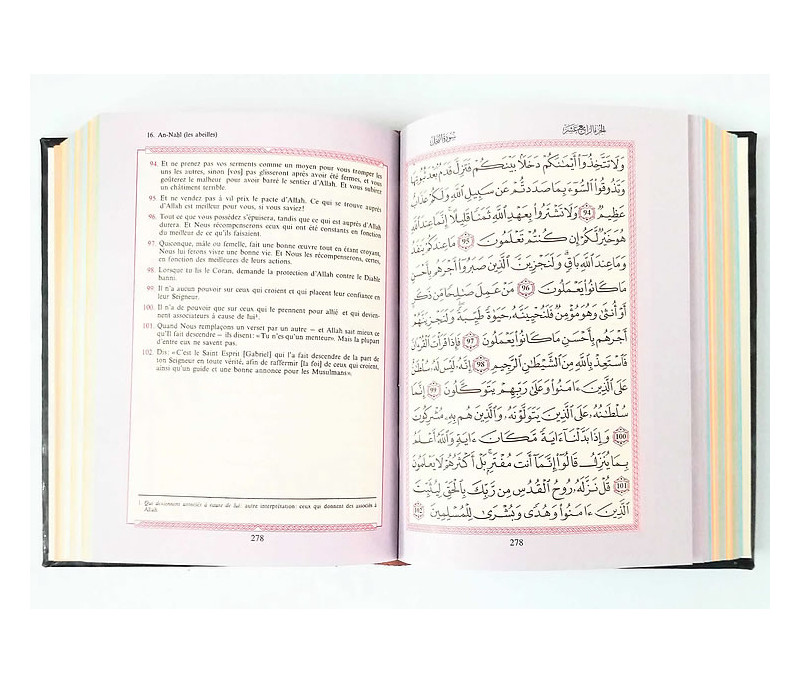 16. An-Naḥl (les abeilles)
94. Et ne prenez pas vos serments comme un moyen pour vous tromper les
uns les autres, sinon [vos] pas glisseront après avoir été fermes, et vous
goûterez le malheur pour avoir barré le sentier d'Allah. Et vous subirez
un châtiment terrible.
95. Et ne vendez pas à vil prix le pacte d'Allah. Ce qui se trouve auprès
d'Allah est meilleur pour vous, si vous saviez!
96. Tout ce que vous possédez s'épuisera, tandis que ce qui est auprès d'Allah
durera. Et Nous récompenserons ceux qui ont été constants en fonction
du meilleur de ce qu'ils faisaient.
97. Quiconque, mâle ou femelle, fait une bonne œuvre tout en étant croyant,
Nous lui ferons vivre une bonne vie. Et Nous les récompenserons, certes,
en fonction des meilleures de leurs actions.
98. Lorsque tu lis le Coran, demande la protection d'Allah contre le Diable
banni.
99. Il n'a aucun pouvoir sur ceux qui croient et qui placent leur confiance en
leur Seigneur.
100. Il n'a de pouvoir que sur ceux qui le prennent pour allié et qui devien-
nent associateurs à cause de lui¹.
101. Quand Nous remplaçons un verset par un autre — et Allah sait mieux ce
qu'Il fait descendre — ils disent: «Tu n'es qu'un menteur». Mais la plupart
d'entre eux ne savent pas.
102. Dis: «C'est le Saint Esprit [Gabriel] qui l'a fait descendre de la part de
ton Seigneur en toute vérité, afin de raffermir [la foi] de ceux qui croient,
ainsi qu'un guide et une bonne annonce pour les Musulmans».
1. Qui deviennent associés à cause de lui: autre interprétation: ceux qui donnent des associés à
Allah
278
الجزء الرابع عشر
سورة النحل
وَلَا تَتَّخِذُوٓا۟ أَيْمَٰنَكُمْ دَخَلًۢا بَيْنَكُمْ فَتَزِلَّ قَدَمٌۢ بَعْدَ ثُبُوتِهَا
وَتَذُوقُوا۟ ٱلسُّوٓءَ بِمَا صَدَدتُّمْ عَن سَبِيلِ ٱللَّهِ وَلَكُمْ عَذَابٌ
عَظِيمٌ 94 وَلَا تَشْتَرُوا۟ بِعَهْدِ ٱللَّهِ ثَمَنًا قَلِيلًا إِنَّمَا عِندَ ٱللَّهِ
هُوَ خَيْرٌ لَّكُمْ إِن كُنتُمْ تَعْلَمُونَ 95 مَا عِندَكُمْ يَنفَدُ
وَمَا عِندَ ٱللَّهِ بَاقٍ وَلَنَجْزِيَنَّ ٱلَّذِينَ صَبَرُوٓا۟ أَجْرَهُم بِأَحْسَنِ
مَا كَانُوا۟ يَعْمَلُونَ 96 مَنْ عَمِلَ صَٰلِحًا مِّن ذَكَرٍ
أَوْ أُنثَىٰ وَهُوَ مُؤْمِنٌ فَلَنُحْيِيَنَّهُۥ حَيَوٰةً طَيِّبَةً وَلَنَجْزِيَنَّهُمْ
أَجْرَهُم بِأَحْسَنِ مَا كَانُوا۟ يَعْمَلُونَ 97 فَإِذَا قَرَأْتَ ٱلْقُرْءَانَ
فَٱسْتَعِذْ بِٱللَّهِ مِنَ ٱلشَّيْطَٰنِ ٱلرَّجِيمِ 98 إِنَّهُۥ لَيْسَ لَهُۥ سُلْطَٰنٌ
عَلَى ٱلَّذِينَ ءَامَنُوا۟ وَعَلَىٰ رَبِّهِمْ يَتَوَكَّلُونَ 99 إِنَّمَا
سُلْطَٰنُهُۥ عَلَى ٱلَّذِينَ يَتَوَلَّوْنَهُۥ وَٱلَّذِينَ هُم بِهِۦ مُشْرِكُونَ
100 وَإِذَا بَدَّلْنَآ ءَايَةً مَّكَانَ ءَايَةٍ وَٱللَّهُ أَعْلَمُ
بِمَا يُنَزِّلُ قَالُوٓا۟ إِنَّمَآ أَنتَ مُفْتَرٍۭ بَلْ أَكْثَرُهُمْ لَا يَعْلَمُونَ
101 قُلْ نَزَّلَهُۥ رُوحُ ٱلْقُدُسِ مِن رَّبِّكَ بِٱلْحَقِّ لِيُثَبِّتَ
ٱلَّذِينَ ءَامَنُوا۟ وَهُدًى وَبُشْرَىٰ لِلْمُسْلِمِينَ 102
278